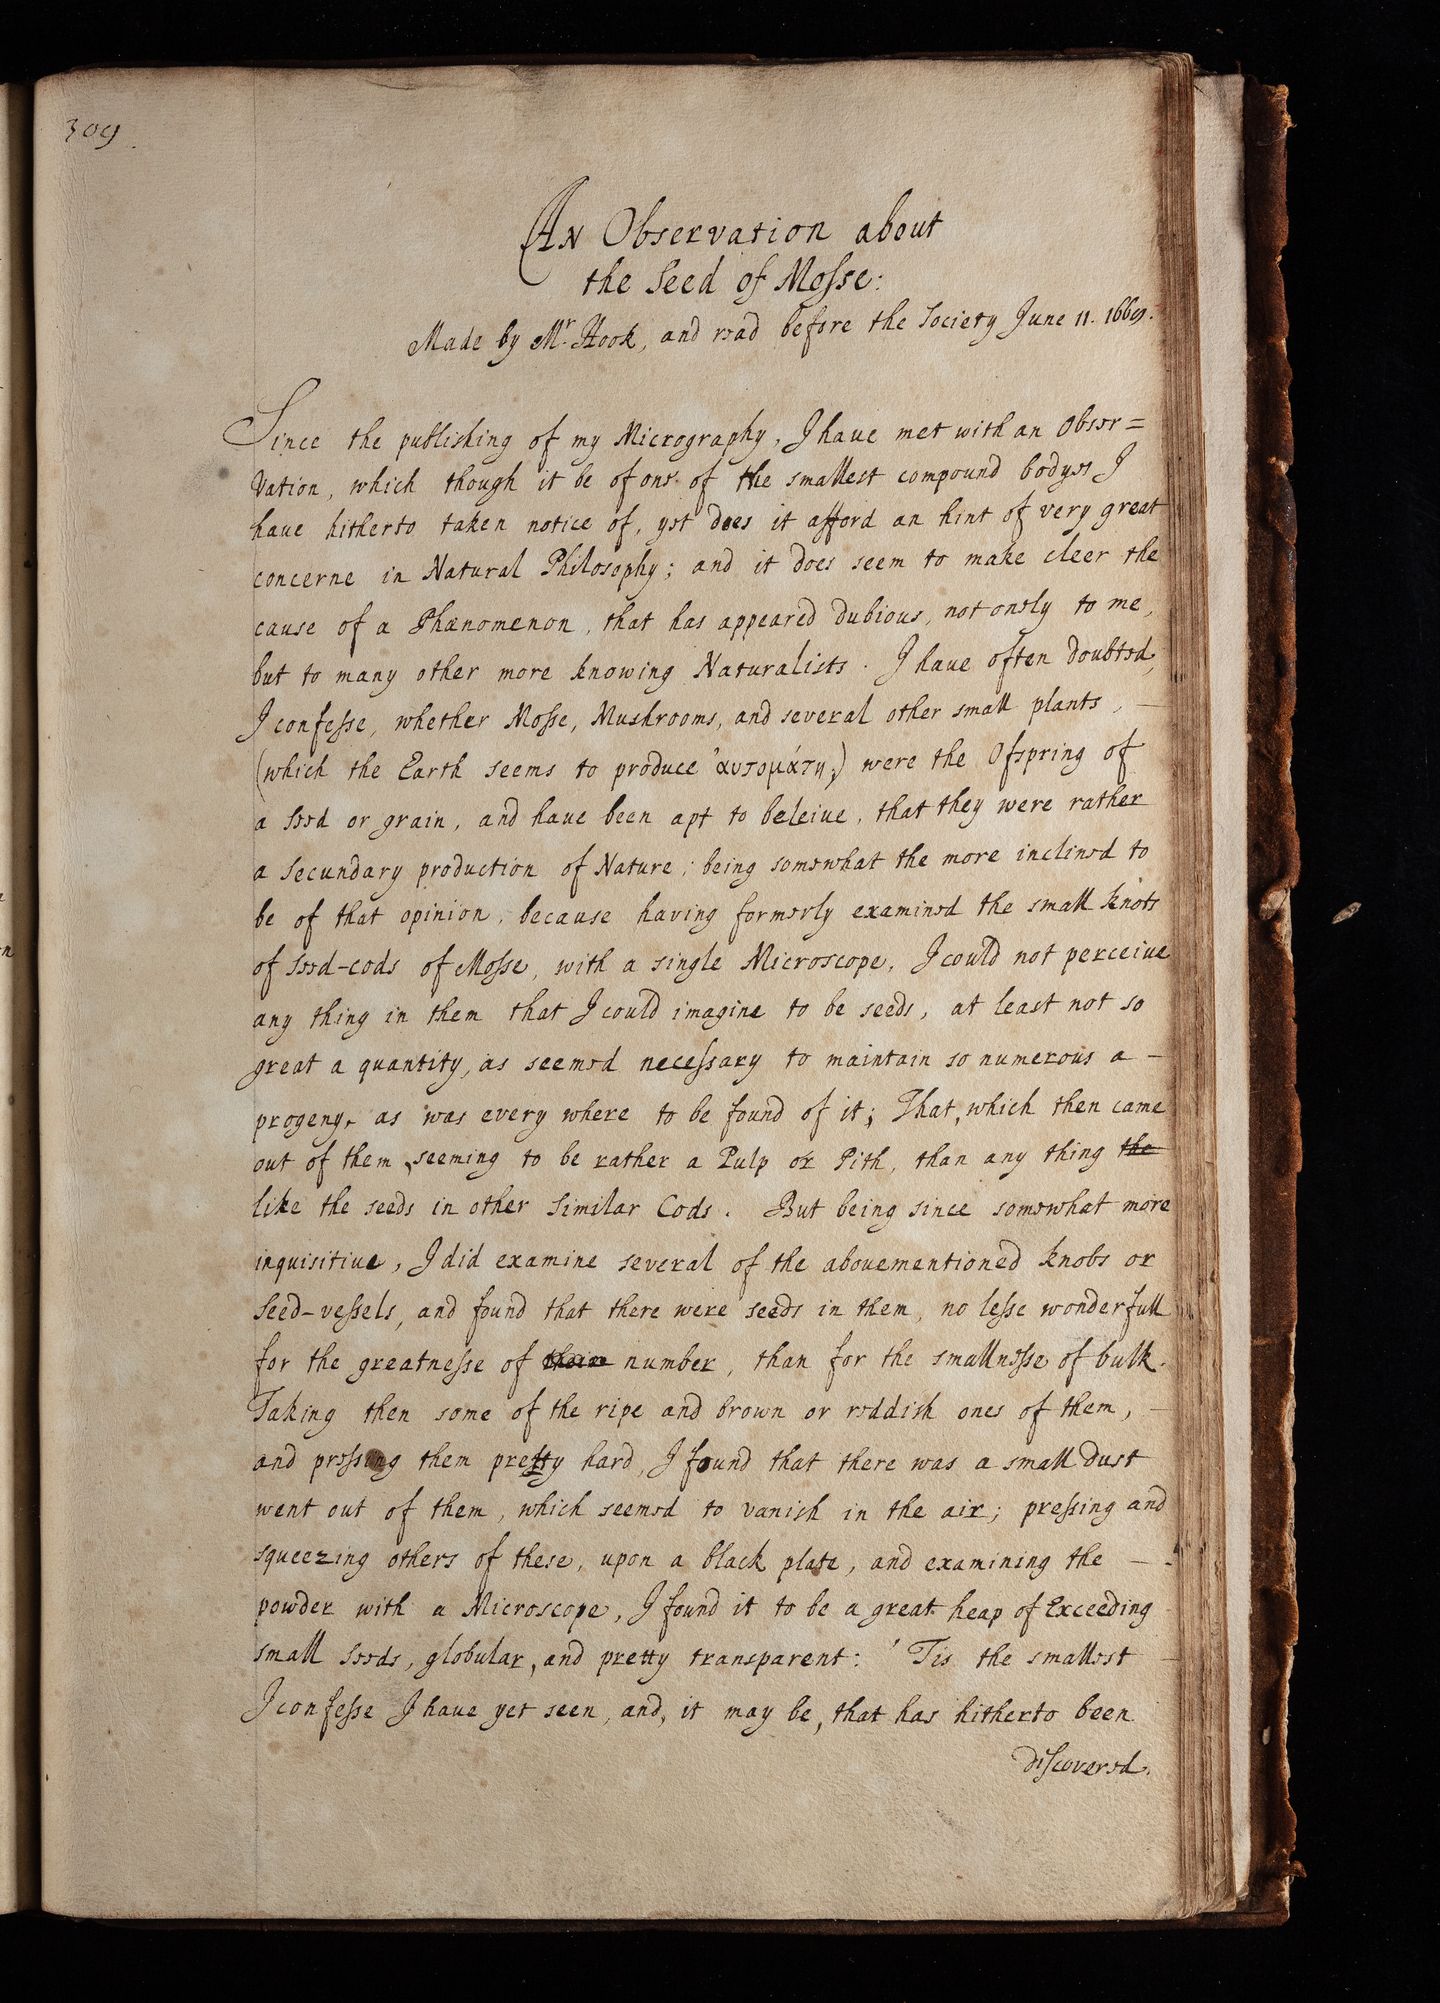 309
An Observation about
the Seed of Mosse:
Made by Mr. Hook, and read before the Society June 11. 1669.
Since the publishing of my Micrography, I haue met with an Obser=
vation, which though it be of one of the smallest compound bodyes I
haue hitherto taken notice of, yet does it afford an hint of very great
concerne in Natural Philosophy; and it does seem to make cleer the
cause of a Phænomenon, that has appeared dubious, not onely to me,
but to many other more knowing Naturalists. I haue often doubted,
I confesse, whether Mosse, Mushrooms, and several other small plants, —
(which the Earth seems to produce ἀυτομάτη,) were the Ofspring of
a seed or grain, and haue been apt to beleiue, that they were rather
a secundary production of Nature; being somewhat the more inclined to
be of that opinion, because having formerly examined the small knots
of seed-cods of Mosse, with a single Microscope, I could not perceiue
any thing in them that I could imagine to be seeds, at least not so
great a quantity, as seemed necessary to maintain so numerous a —
progeny, as was every where to be found of it; That, which then came
out of them, seeming to be rather a Pulp or Pith, than any thing the
like the seeds in other similar Cods. But being since somewhat more
inquisitiue, I did examine several of the abouementioned knobs or
seed-vessels, and found that there were seeds in them, no lesse wonderfull
for the greatnesse of their number, than for the smallnesse of bulk.
Taking then some of the ripe and brown or reddish ones of them, —
and pressing them pretty hard, I found that there was a small dust
went out of them, which seemed to vanish in the air; pressing and
squeezing others of these, upon a black plate, and examining the — -
powder with a Microscope, I found it to be a great heap of Exceeding
small seeds, globular, and pretty transparent: 'Tis the smallest —
I confesse I haue yet seen, and, it may be, that has hitherto been
discovered.